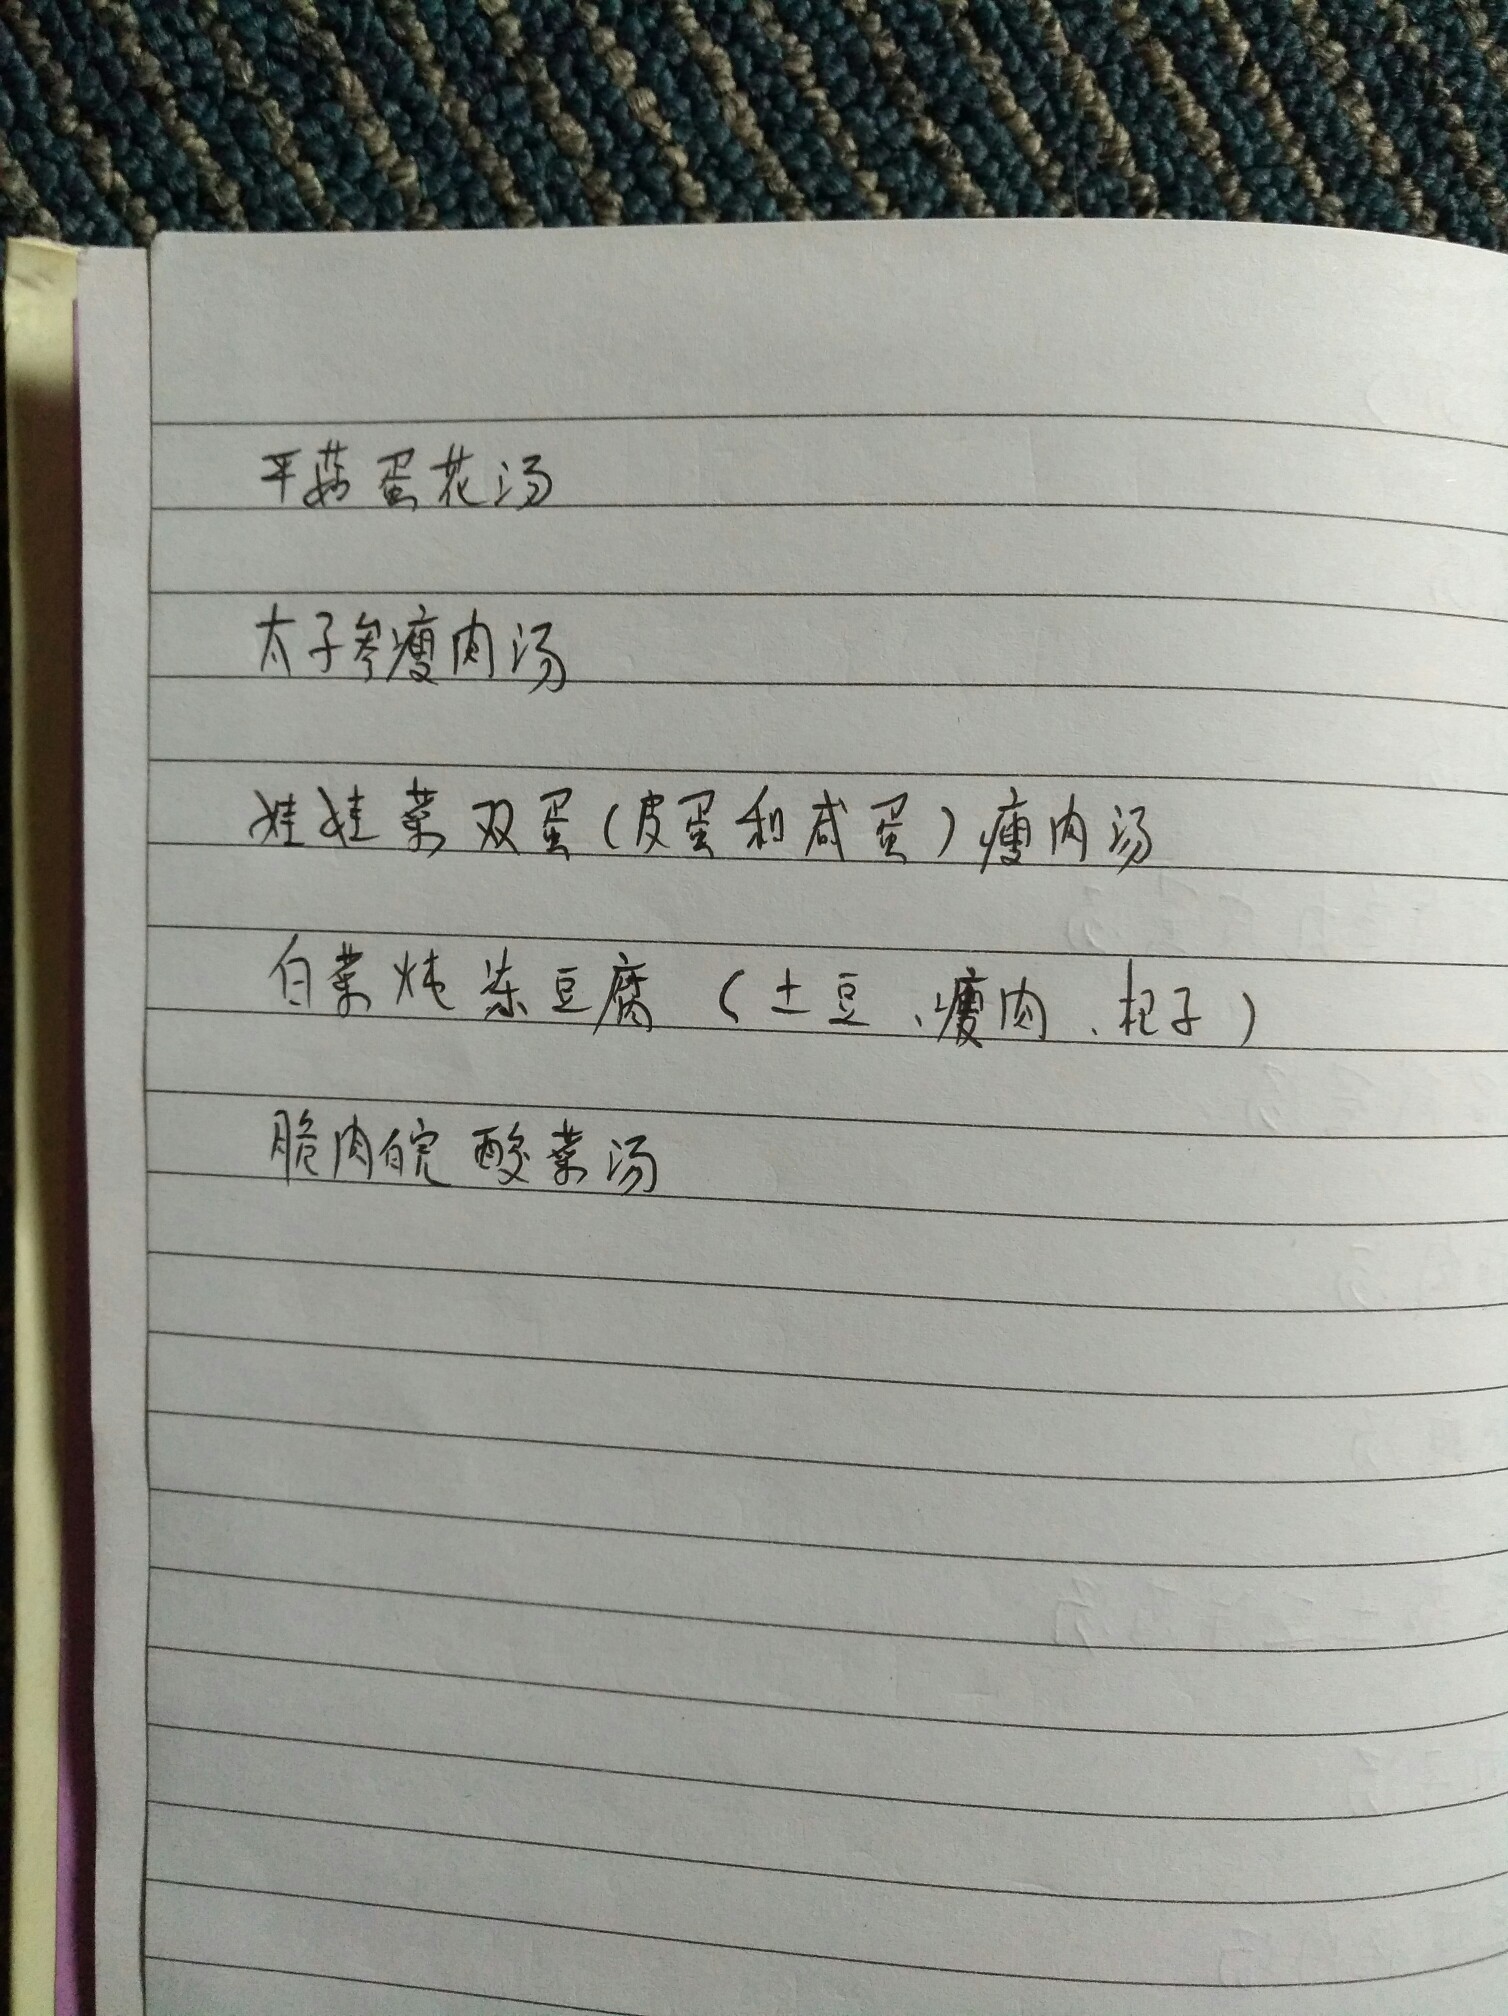 平菇蛋花汤
太子参瘦肉汤
娃娃菜双蛋(皮蛋和咸蛋)瘦肉汤
白菜炖冻豆腐(土豆、瘦肉、杞子)
脆肉皖酸菜汤